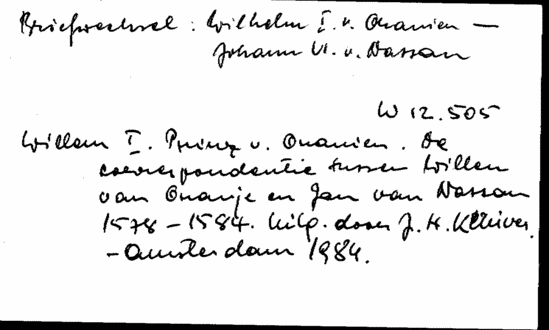 Briefwechsel : Wilhelm I. v. Oranien —
Johann VI. v. Nassau
W 12.505
Willem I. Prinz v. Oranien. De
correspondentie tussen Willem
van Oranje en Jan van Nassau
1578 – 1584. Uitg. door J. H. Kluiver.
– Amsterdam 1984.